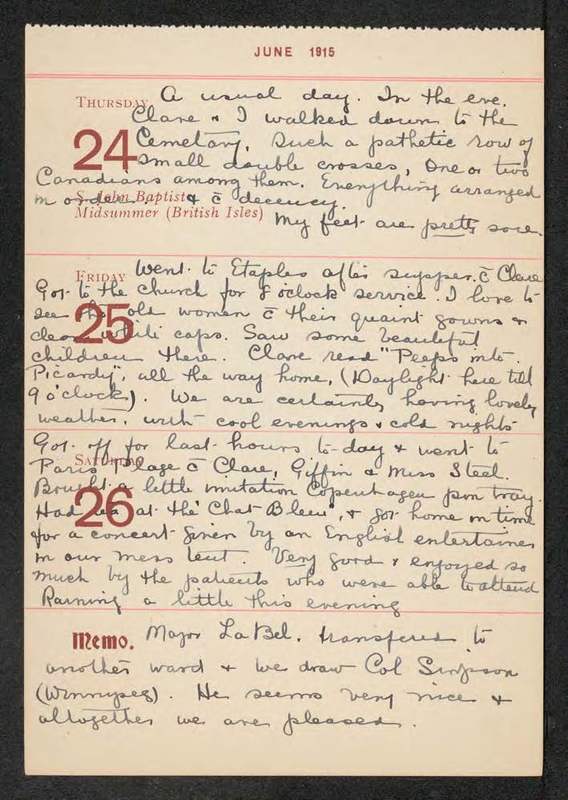 JUNE 1915
THURSDAY A usual day. In the eve.
Clare & I walked down to the
24 Cemetary, Such a pathetic row of
small double crosses, One or two
Canadians among them. Everything arranged
in order & c̄ decency.
S. John Baptist
Midsummer (British Isles) My feet are pretty sore.
FRIDAY Went to Etaples after supper. c̄ Clare
Got to the church for 8 oclock service. I love to
see the old women c̄ their quaint gowns &
25 clean white caps. Saw some beautiful
children there. Clare read "Peeps into
Picardy", all the way home, (Daylight here till
9 o'clock). We are certainly having lovely
weather, with cool evenings & cold nights
Got off for last hours to-day & went to
SATURDAY Paris Plage c̄ Clare, Giffin & Miss Steel.
Bought a little imitation Copenhagen pin tray.
26 Had tea at the "Chat Bleu", & got home in time
for a concert given by an English entertainer
in our mess tent. Very good & enjoyed so
much by the patients who were able to attend
Raining a little this evening
Memo. Major LaBel. transfered to
another ward & we draw Col Simpson
(Winnipeg). He seems very nice &
altogether we are pleased.